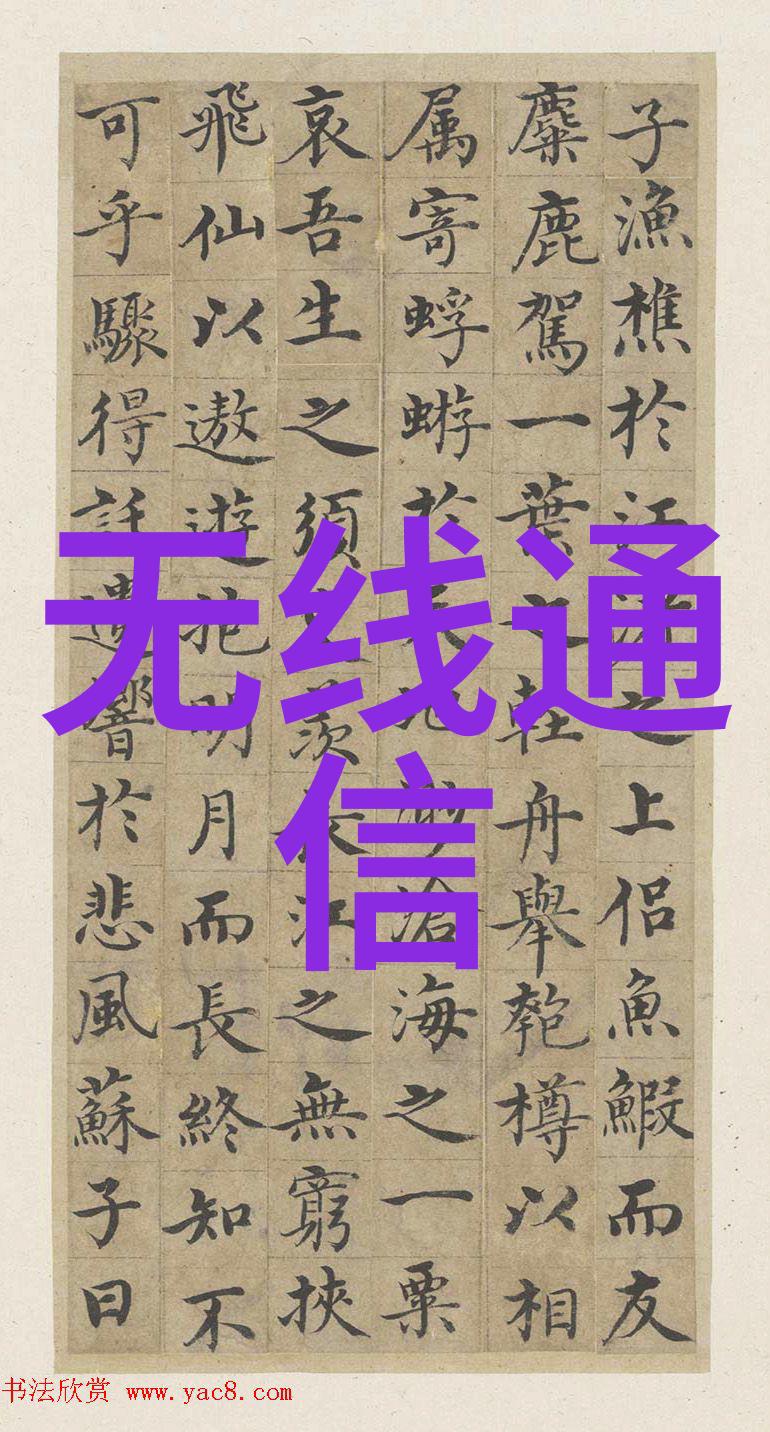 子漁樵於江渚之上侶魚鰕而友
麋鹿駕一葉之輕舟舉匏樽以相
属寄蜉蝣於天地渺滄海之一粟
哀吾生之須臾羨長江之無窮挾
飛仙以遨遊抱明月而長終知不
可乎驟得託遺響於悲風蘇子曰
无线通
信
书法欣赏 www.yac8.com